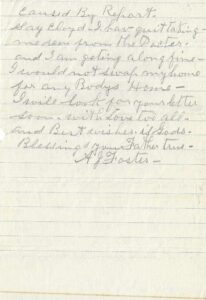 Caused By Report.
Say Cloyd I hav quit taking
medsen from the Docter.
and I am geting along fine -
I would not swap my home
for any Bodys Home -
I will look for your letter
soon - with Love to all -
and Best wishes. & Gods.
Blessing your Father true -
A J Foster -